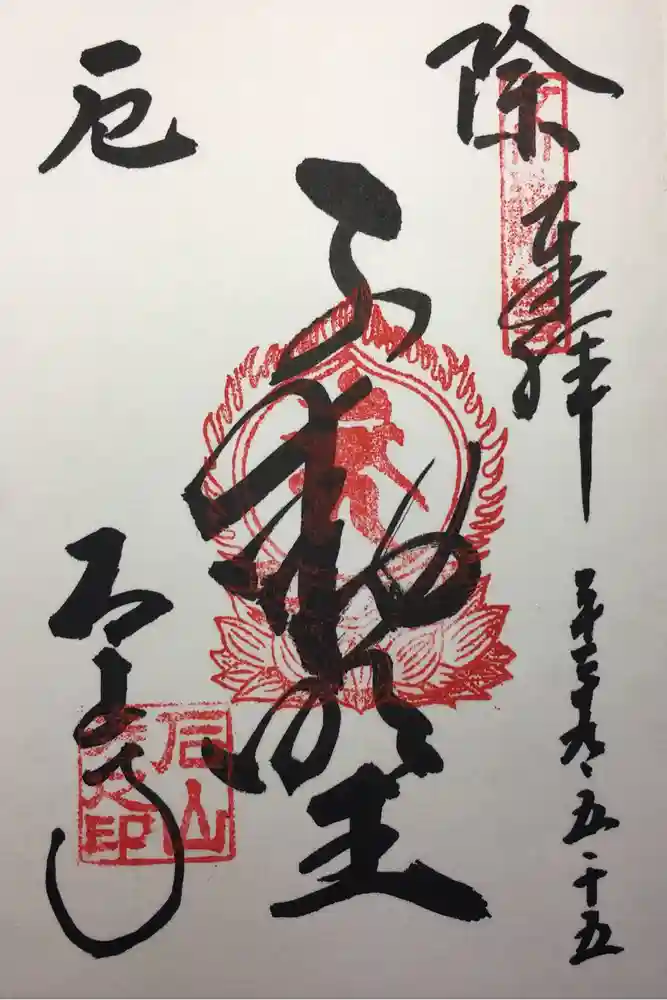 除厄
奉拝
平成二十九、五、十五
不動明王
石山寺
石山
寺之印